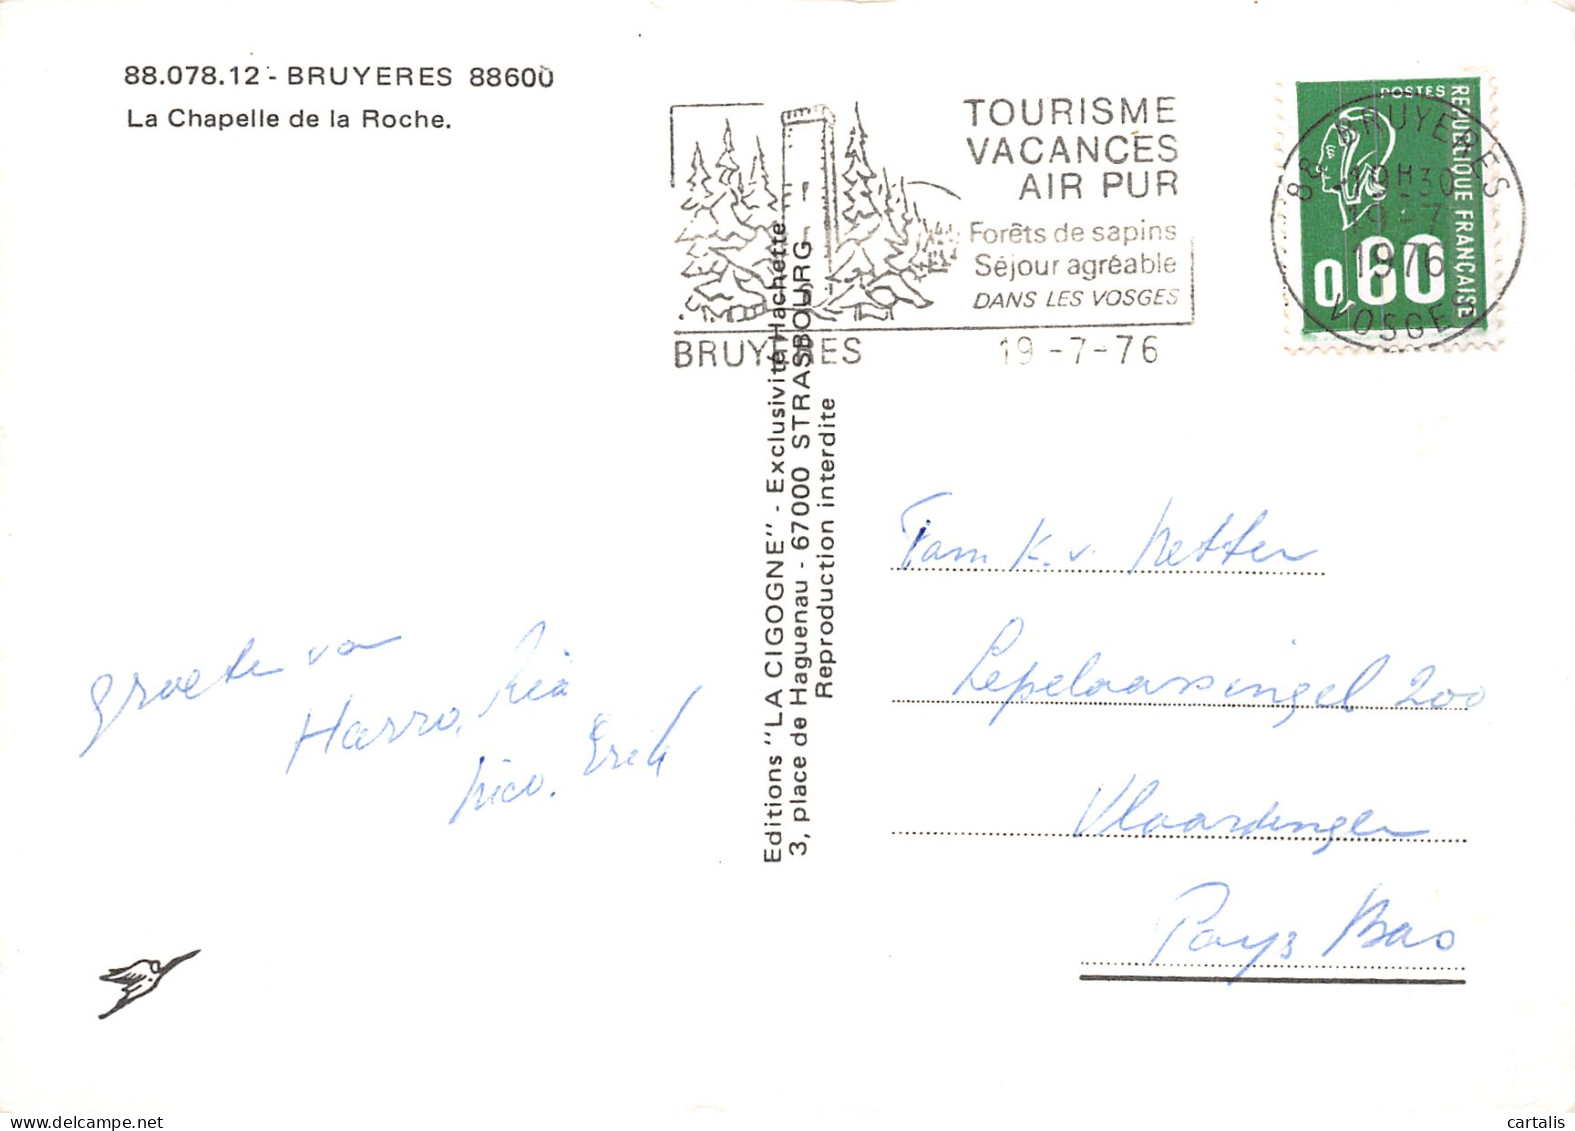 88.078.12 - BRUYERES 88600
La Chapelle de la Roche.
TOURISME
VACANCES
AIR PUR
Forêts de sapins
Séjour agréable
DANS LES VOSGES
BRUYERES 19-7-76
POSTES
REPUBLIQUE FRANÇAISE
0,60
88 BRUYERES
19H30
19-7
1976
VOSGES
Editions "LA CIGOGNE" - Exclusivité Hachette
3, place de Haguenau - 67000 STRASBOURG
Reproduction interdite
groeten va
Harro, Ria
Nico. Erik
Fam K. v. Netten
Lepelaarsingel 200
Vlaardingen
Pays Bas
cartalis